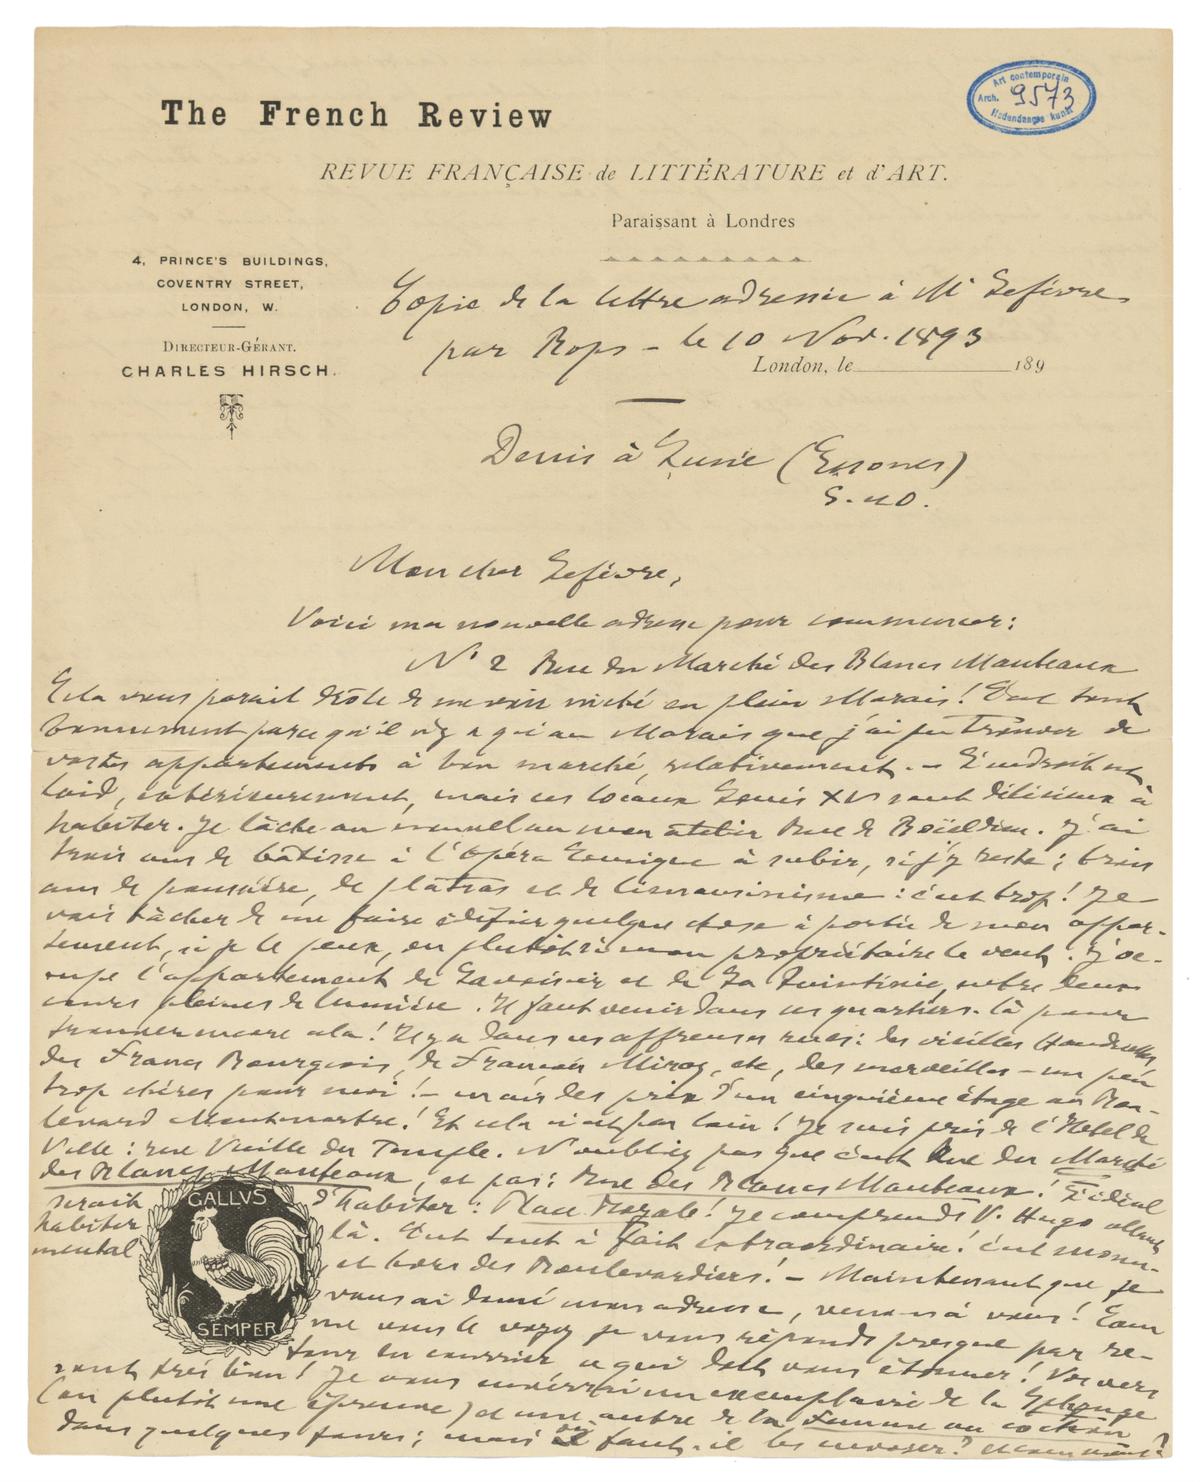 The French Review
Art contemporain
Arch. 9573
Hedendaagse kunst
REVUE FRANÇAISE de LITTÉRATURE et d'ART.
Paraissant à Londres
4, PRINCE'S BUILDINGS,
COVENTRY STREET,
LONDON, W.
DIRECTEUR-GÉRANT.
CHARLES HIRSCH.
Copie de la lettre adressée à Mr Lefèvre
par Rops - le 10 Nov. 1893
London, le 189
Demi à Lune (Essonnes)
S. et O.
Mon cher Lefèvre,
Voici ma nouvelle adresse pour commencer:
No 2 Rue du Marché des Blancs Manteaux
Cela vous parait drôle de me voir niché en plein Marais! C'est tout
bonnement parce qu'il n'y a qu'au Marais que j'ai pu trouver de
vastes appartements à bon marché, relativement. - L'endroit est
laid, extérieurement, mais ces locaux Louis XV sont délicieux à
habiter. Je lâche au nouvel an mon atelier Rue de Boïeldieu. J'ai
trois ans de bâtisse à l'Opéra Comique à subir, si j'y reste; trois
ans de poussière, de plâtras et de limousinisme: c'est trop! Je
vais tâcher de me faire édifier quelque chose à portée de mon appar-
tement, si je le peux, ou plutôt si mon propriétaire le veut. J'oc-
cupe l'appartement de Lavoisier et de La Quintinie, entre deux
cours pleines de lumière. Il faut venir dans ces quartiers-là pour
trouver encore cela! Il y a dans ces affreuses rues: des vieilles Haudriettes
des Francs Bourgeois, de François Miron, etc, des merveilles - un peu
trop chères pour moi! - mais des prix d'un cinquième étage au Bou-
levard Montmartre! Et cela n'est pas loin! Je suis près de l'Hotel de
Ville: rue Vieille du Temple. N'oubliez pas que c'est Rue du Marché
des Blancs Manteaux, et pas: Rue des Blancs Manteaux! L'idéal
serait d'habiter: Place Royale! Je comprends V. Hugo allant
habiter là. C'est tout à fait extraordinaire! c'est monu-
mental, et hors des Boulevardiers! - Maintenant que je
vous ai donné mon adresse, venons à vous! Com
me vous le voyez je vous réponds presque par re-
tour du courrier, ce qui doit vous étonner! Vos vers
sont très bien! Je vous enverrai un exemplaire de la
(ou plutôt une épreuve) et une autre de la Femme au cochon
dans quelques jours; mais où faut-il les envoyer? et comment?
GALLVS
SEMPER